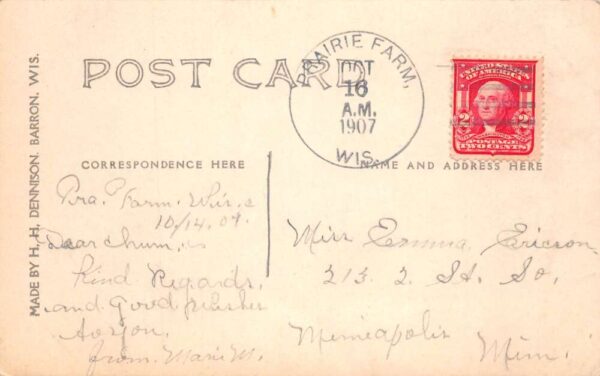 POST CARD
PRAIRIE FARM,
OCT
16
A.M.
1907
WIS.
UNITED STATES
OF AMERICA
2 2
POSTAGE
TWO CENTS
MADE BY H. H. DENNISON, BARRON, WIS.
CORRESPONDENCE HERE
NAME AND ADDRESS HERE
Pra. Farm, Wis.
10/14.07.
Dear chum,
Kind Regards,
and Good wishes
from. Marie M.
Miss Emma Ericson
213. 2 St. So.
Minneapolis
Minn.